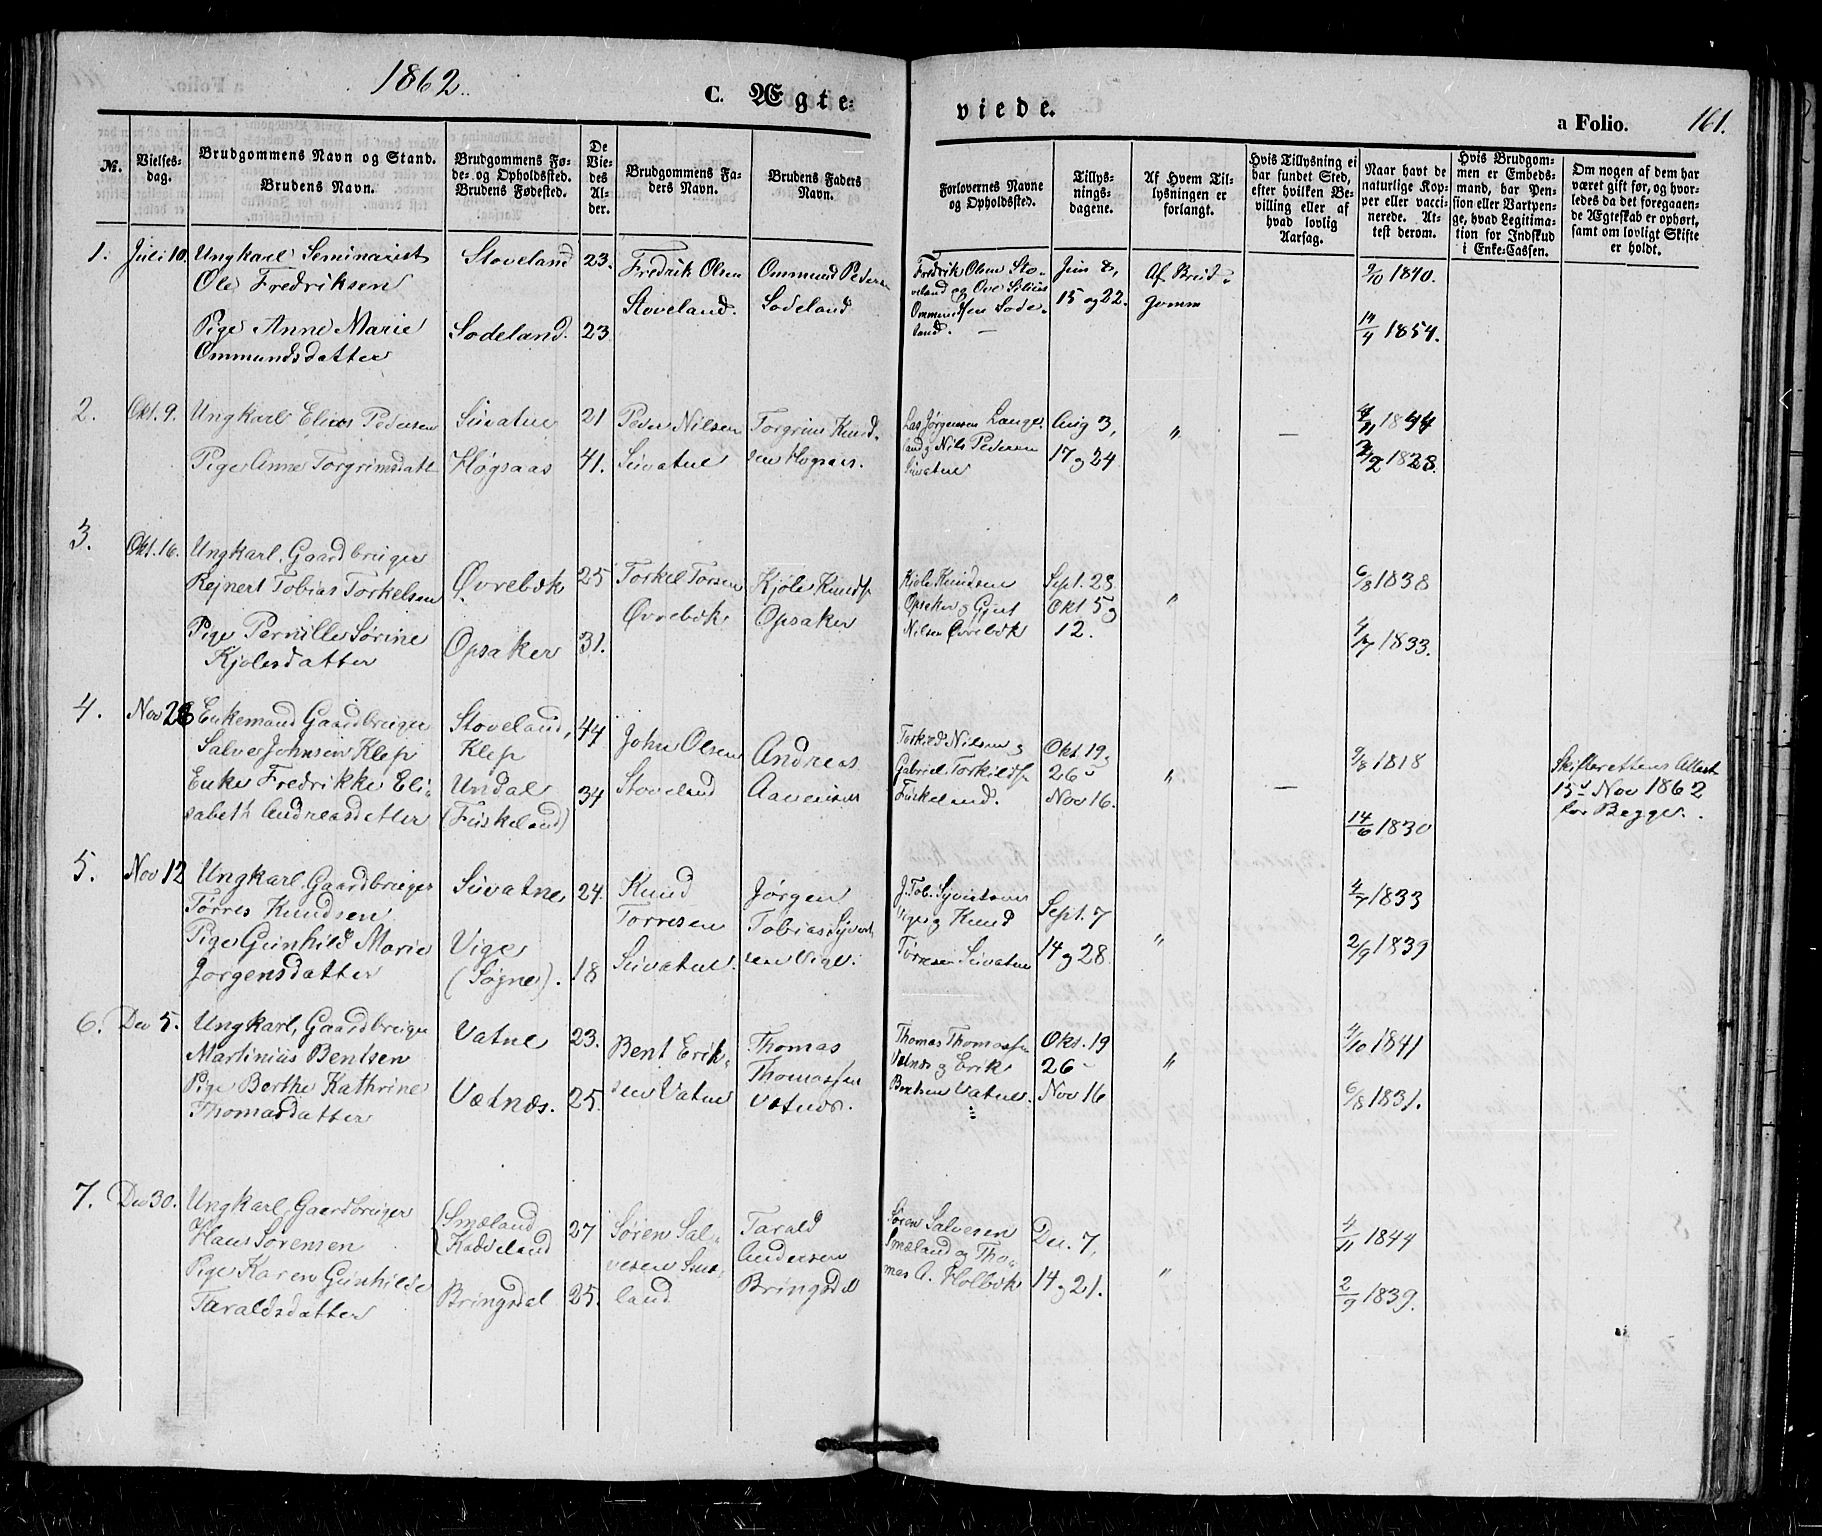 1862.
C. Ægte-
viede.
a Folio.
161.
№.
Vielses-
dag.
Brudgommens Navn og Stand.
Brudens Navn.
Brudgommens Fø-
de- og Opholdssted.
Brudens Fødested.
De
Vie-
des
Al-
der.
Brudgommens Fa-
ders Navn.
Brudens Faders
Navn.
Forlovernes Navne
og Opholdssted.
Tillys-
nings-
dagene.
Af Hvem Til-
lysningen er
forlangt.
Hvis Tillysning ei
har fundet Sted,
efter hvilken Be-
villing eller af
hvad lovlig
Aarsag.
Naar havt de
naturlige Kop-
per eller vacci-
nerede. At-
test derom.
Hvis Brudgom-
men er Embeds-
mand, har Pen-
sion eller Vartpen-
ge, hvad Legitima-
tion for Indskud
i Enke-Cassen.
Om nogen af dem har
været gift før, og hvor-
ledes da det foregaaen-
de Ægteskab er ophørt,
samt om lovligt Skifte
er holdt.
1. Juli 10. Ungkarl Seminarist
Ole Fredriksen
Pige Anne Marie
Ommundsdatter
Stoveland 23.
Sodeland. 23
Fredrik Olsen
Stoveland.
Ommund Pedersen
Sodeland
Fredrik Olsen Sto-
veland og Ove Silius
Ommundsen Sode-
land. —
Juni 8,
15 og 22.
Af Brud-
gomm
9/10 1840.
14/4 1854.
2. Okt. 9. Ungkarl Elias Pedersen
Pige Anne Torgrimsdatt
Suvatne 21
Høgsaas 41.
Peder Nilsen
Suvatne
Torgrim Knud-
sen Høgsaas.
Las Jørgensen Lange-
land og Nils Pedersen
Suvatne
Aug 3,
17 og 24
"
—
4/11 1844
3/12 1828.
3. Okt. 16. Ungkarl, Gaardbruger
Rejnert Tobias Torkelsen
Pige Pernille Sørine
Kjølesdatter
Øvrebøk 25
Opsaker 31.
Torkel Torsen
Øvrebøk
Kjøle Knuds.
Opsaker
Kjøle Knudsen
Opsaker og Gjert
Nilsen Øvrebøk
Sept. 28
Okt 5 og
12.
"
6/8 1838
4/7 1833.
4. Nov 28 Enkemand Gaardbruger
Salve Johnsen Klep
Enke Fredrikke Eli-
sabeth Andreasdatter
Stoveland, 44
Klep
Undal 34
(Fuskeland)
John Olsen
Stoveland
Andreas
Aavensen
Torkild Nilsen og
Gabriel Torkilds.
Fuskeland.
Okt. 19,
26 -
Nov 16.
"
—
9/8 1818
14/6 1830
Skifterettens Attest
15de Nov 1862
for Begge.
5. Nov 12 Ungkarl, Gaardbruger
Tørres Knudsen
Pige Gunhild Marie
Jørgensdatter
Suvatne 24.
Vige
(Søgne). 18
Knud
Torresen
Suvatne.
Jørgen
Tobias Syvert-
sen Vige.
J. Tob. Syvertsen
Vige og Knud
Tørresen Suvatne
Sept. 7
14 og 28.
"
4/7 1833
2/9 1839
6. Dec 5. Ungkarl, Gaardbruger
Martinius Bentsen
Pige Berthe Kathrine
Thomasdatter
Vatne 23.
Vetnes. 25.
Bent Erik-
sen Vatne
Thomas
Thomassen
Vetnes.
Thomas Thomassen
Vetnes og Erik
Bentsen Vatne
Okt. 19
26 -
Nov 16
"
4/10 1841
6/8 1831.
7. Dec 30. Ungkarl, Gaardbruger
Hans Sørensen
Pige Karen Gunhilde
Taraldsdatter
(Smæland 27
(Kaddeland
Bringsdal 25.
Søren Sal-
vesen Smæ-
land
Tarald
Andersen
Bringsdal
Søren Salvesen
Smæland og Tho-
mas A. Holbek
Dec. 7,
14 og 21.
"
4/11 1844
2/9 1839.